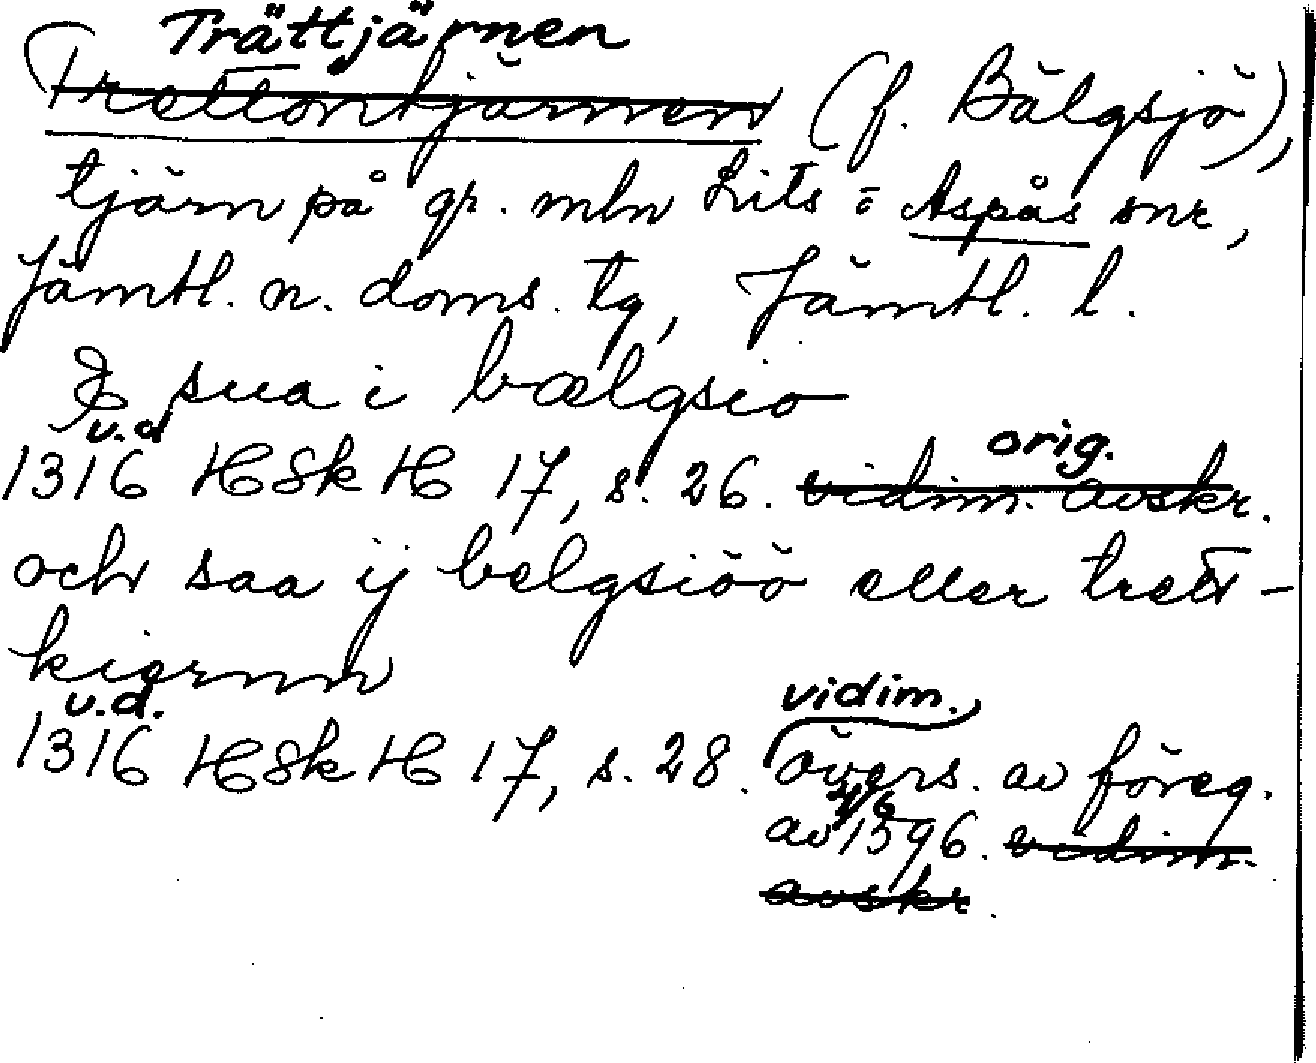 Trättjärnen
Trettontjärnen (f. Bälgsjö),
tjärn på gr. mln Lits o Aspås snr,
Jämtl. n. doms. tg, Jämtl. l.
& sua i bælgsio
u.d
1316 HSkH 17, s. 26. orig. vidim. avskr.
och saa ij belgsiöö eller trett-
kiernn
u.d.
1316 HSkH 17, s. 28. vidim. övers. av föreg.
av 1596. vidim.
avskr.